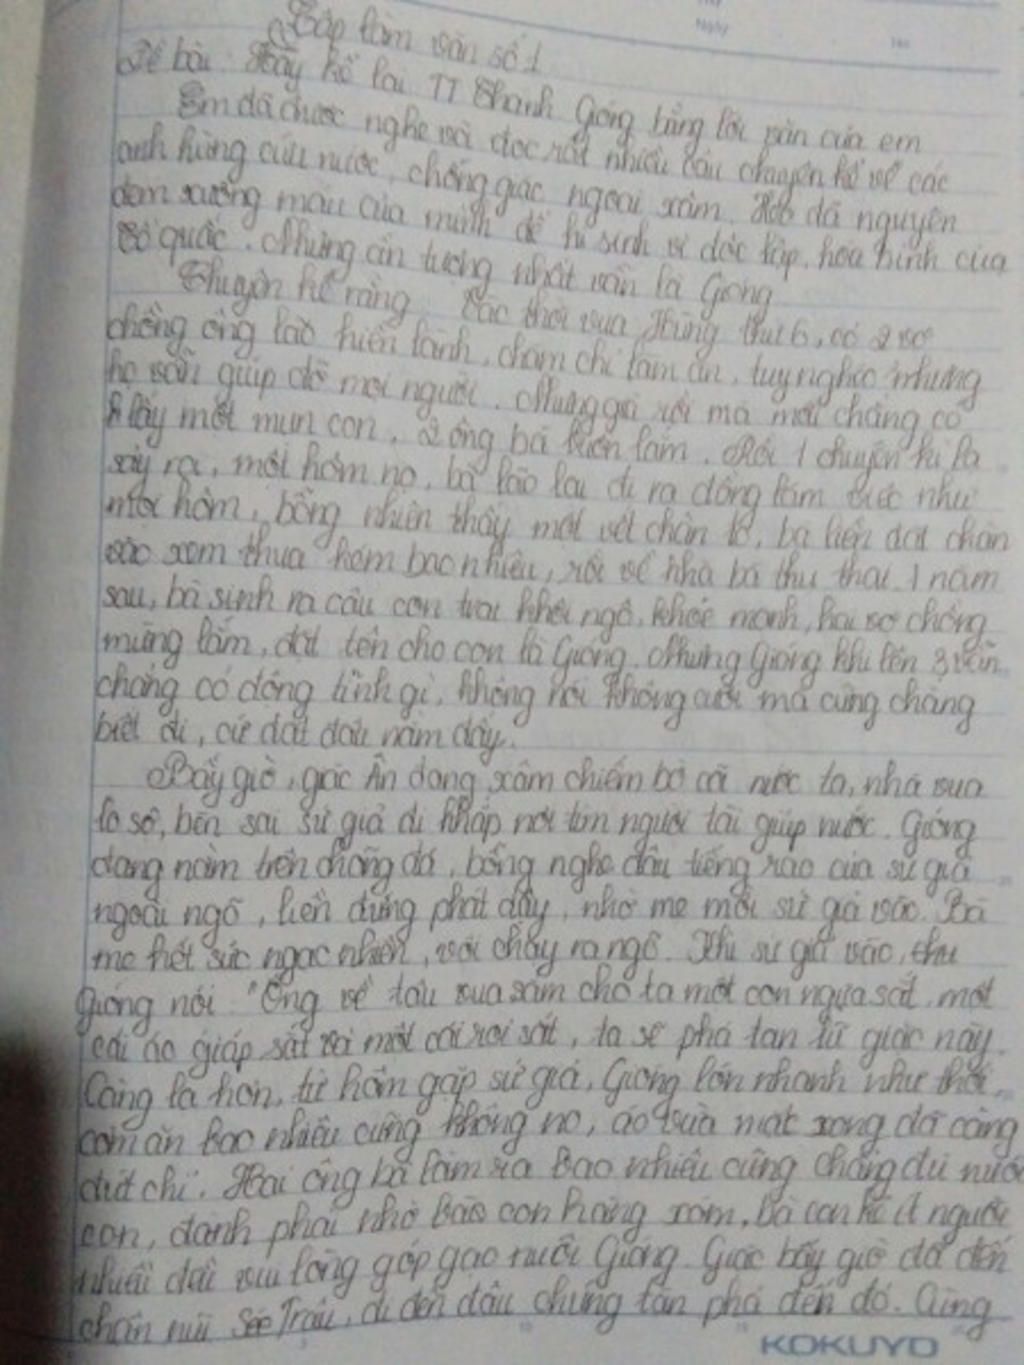 Tập làm văn số 1
Đề bài: Hãy kể lại TT Thánh Gióng bằng lời văn của em
Em đã được nghe và đọc rất nhiều câu chuyện kể về các
anh hùng cứu nước, chống giặc ngoại xâm. Họ đã nguyện
đem xương máu của mình để hi sinh vì độc lập, hòa bình của
Tổ quốc. Nhưng ấn tượng nhất vẫn là Gióng
Chuyện kể rằng vào thời vua Hùng thứ 6, có 2 vợ
chồng ông lão hiền lành, chăm chỉ làm ăn, tuy nghèo nhưng
họ vẫn giúp đỡ mọi người. Nhưng già rồi mà mãi chẳng có
lấy một mụn con, 2 ông bà buồn lắm. Rồi 1 chuyện kì lạ
xảy ra, một hôm nọ, bà lão lại đi ra đồng làm việc như
mọi hôm, bỗng nhiên thấy một vết chân to, bà liền đặt chân
vào xem thua kém bao nhiêu, rồi về nhà bà thụ thai. 1 năm
sau, bà sinh ra cậu con trai khôi ngô, khỏe mạnh, hai vợ chồng
mừng lắm, đặt tên cho con là Gióng. Nhưng Gióng khi lên 3 vẫn
chẳng có động tĩnh gì, không nói không cười mà cũng chẳng
biết đi, cứ đặt đâu nằm đấy.
Bấy giờ, giặc Ân đang xâm chiếm bờ cõi nước ta, nhà vua
lo sợ, bèn sai sứ giả đi khắp nơi tìm người tài giúp nước. Gióng
đang nằm trên chõng đá, bỗng nghe đâu tiếng rao của sứ giả
ngoài ngõ, liền đứng phắt dậy, nhờ mẹ mời sứ giả vào. Bà
mẹ hết sức ngạc nhiên, vội chạy ra ngõ. Khi sứ giả vào, thì
Gióng nói "Ông về tâu vua sắm cho ta một con ngựa sắt, một
cái áo giáp sắt và một cái roi sắt, ta sẽ phá tan lũ giặc này.
Càng lạ hơn, từ hôm gặp sứ giả, Gióng lớn nhanh như thổi,
cơm ăn bao nhiêu cũng không no, áo vừa mặc xong đã căng
đứt chỉ. Hai ông bà làm ra bao nhiêu cũng chẳng đủ nuôi
con, đành phải nhờ bà con hàng xóm, bà con kẻ ít người
nhiều đều vui lòng góp gạo nuôi Gióng. Giặc bấy giờ đã đến
chân núi Sóc Trâu, đi đến đâu chúng tàn phá đến đó. Cùng
KOKUYO